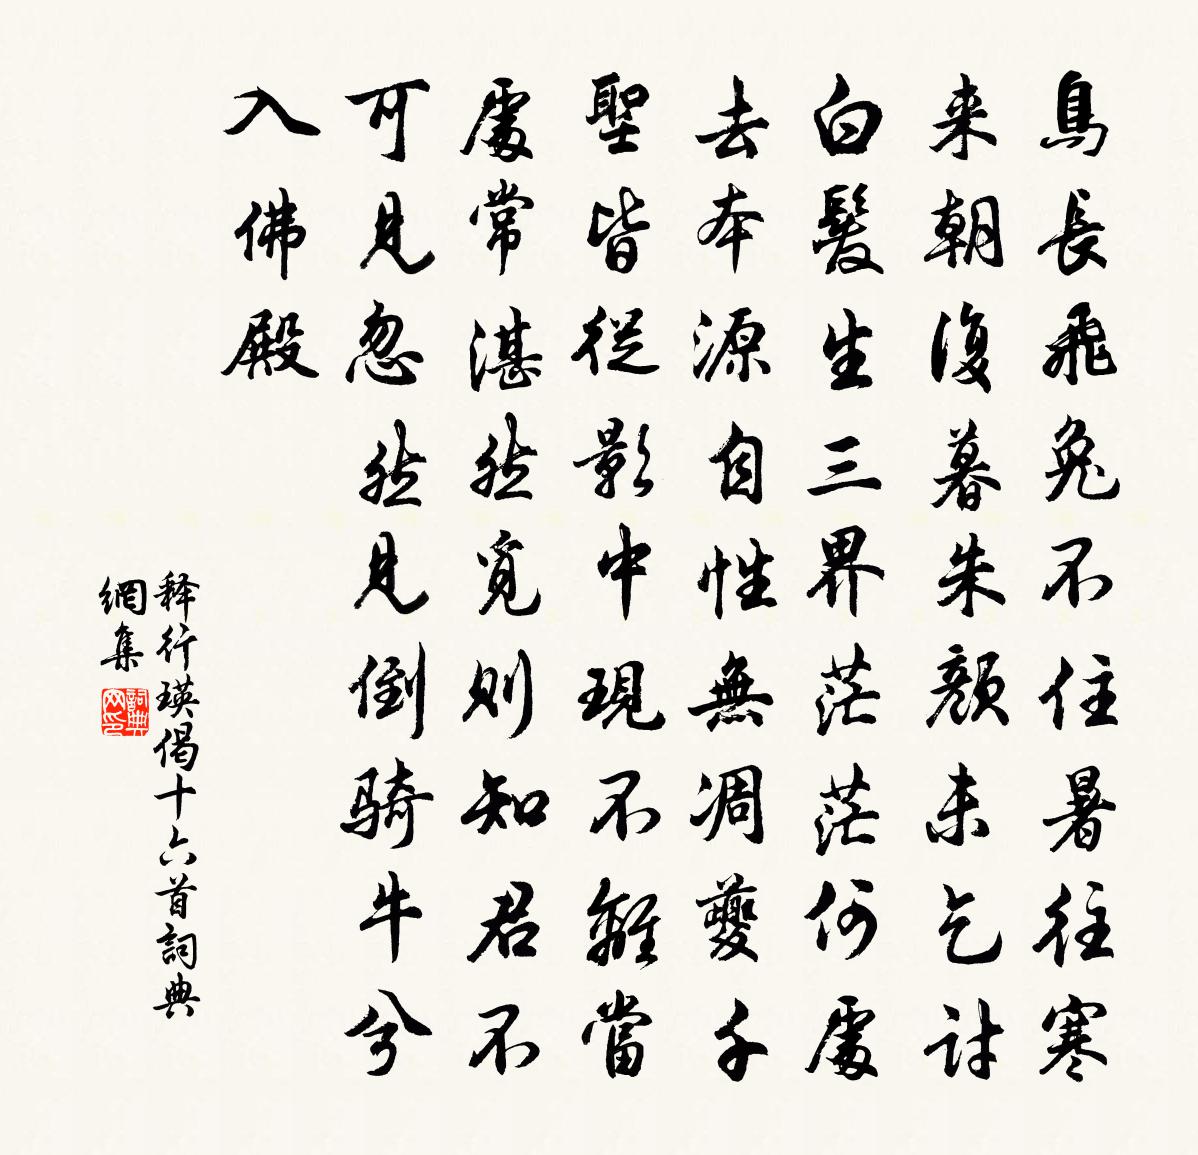 烏長飛兔不住暑往寒
来朝復暮朱顔未乞討
白髮生三界茫茫何處
去本源自性無凋變千
聖皆從影中現不離當
處常湛然覓則知君不
可見忽然見倒騎牛兮
入佛殿
释行瑛偈十六首詞典
網集
詞典
网印